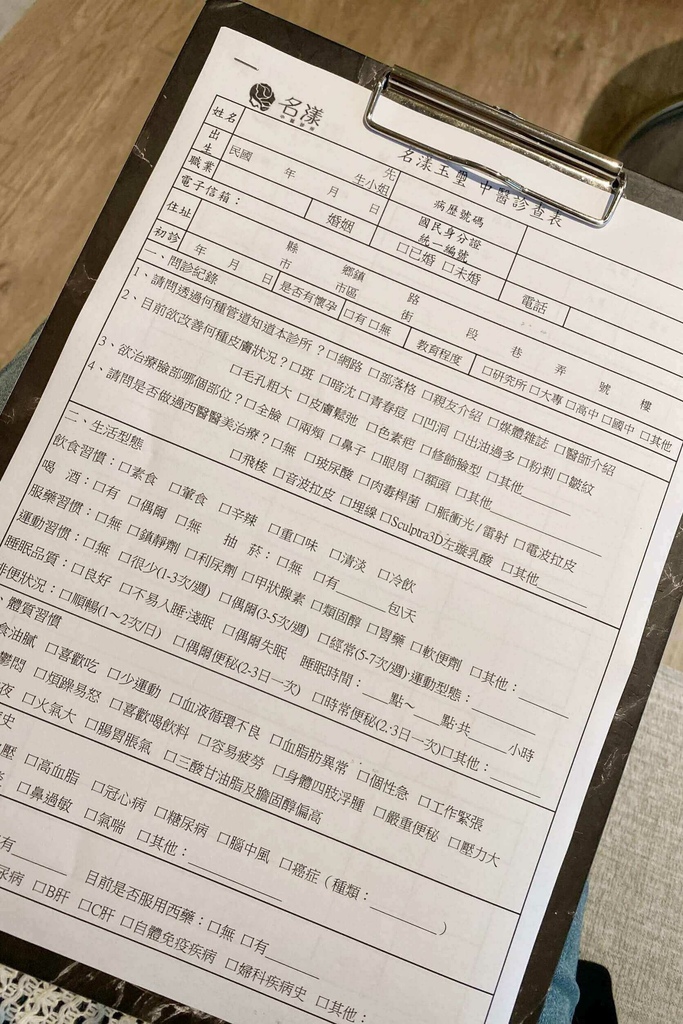 名漾
名漾玉璽 中醫診查表
姓名 先生小姐 病歷號碼
出生 民國 年 月 日 國民身分證統一編號
職業 婚姻 □已婚 □未婚
電子信箱： 電話
住址 縣市 鄉鎮市區 路街 段 巷 弄 號 樓
初診 年 月 日 是否有懷孕 □有□無 教育程度 □研究所□大專□高中□國中□其他
一、問診紀錄
1、請問透過何種管道知道本診所？□網路 □部落格 □親友介紹 □媒體雜誌 □醫師介紹
2、目前欲改善何種皮膚狀況？□斑 □暗沈 □青春痘 □凹洞 □出油過多 □粉刺 □皺紋
□毛孔粗大 □皮膚鬆弛 □色素疤 □修飾臉型 □其他
3、欲治療臉部哪個部位？□全臉 □兩頰 □鼻子 □眼周 □額頭 □其他
4、請問是否做過西醫醫美治療？□無 □玻尿酸 □肉毒桿菌 □脈衝光/雷射 □電波拉皮
□飛梭 □音波拉皮 □埋線 □Sculptra3D左璇乳酸 □其他
二、生活型態
飲食習慣：□素食 □葷食 □辛辣 □重口味 □清淡 □冷飲
喝 酒：□有 □偶爾 □無 抽 菸：□無 □有 包\天
服藥習慣：□無 □鎮靜劑 □利尿劑 □甲狀腺素 □類固醇 □胃藥 □軟便劑 □其他：
運動習慣：□無 □很少(1-3次/週) □偶爾(3-5次/週) □經常(5-7次/週)‧運動型態：
睡眠品質：□良好 □不易入睡‧淺眠 □偶爾失眠 睡眠時間：點～點‧共小時
便狀況：□順暢(1～2次/日) □偶爾便秘(2-3日一次) □時常便秘(2.3日一次)□其他：
、體質習慣
食油膩 □喜歡吃 □少運動 □血液循環不良 □血脂肪異常 □個性急 □工作緊張
鬱悶 □煩躁易怒 □喜歡喝飲料 □容易疲勞 □身體四肢浮腫 □嚴重便秘 □壓力大
夜 □火氣大 □腸胃脹氣 □三酸甘油脂及膽固醇偏高
史
壓 □高血脂 □冠心病 □糖尿病 □腦中風 □癌症（種類：）
□鼻過敏 □氣喘 □其他：
有 目前是否服用西藥：□無 □有
尿病 □B肝 □C肝 □自體免疫疾病 □婦科疾病史 □其他：